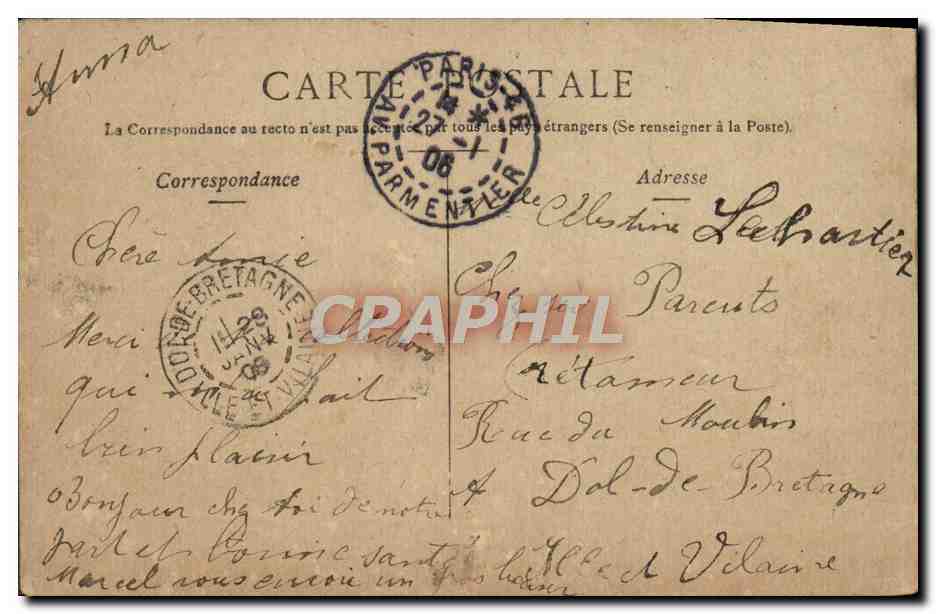 CARTE POSTALE
La Correspondance au recto n'est pas acceptée par tous les pays étrangers (Se renseigner à la Poste).
PARIS-46
27 -1
06
AV PARMENTIER
Correspondance
Chère Amie
Merci
qui fait
bien plaisir
Bonjour chez toi de notre
part et bonne santé
Marcel vous envoi un gros baiser
DOL-DE-BRETAGNE
26
JANV
06
ILLE ET VILAINE
Adresse
Mlle Célestine
Chez ses Parents
Rétameur
Rue du Moulin
A Dol-de-Bretagne
Ille et Vilaine
CPAPHIL